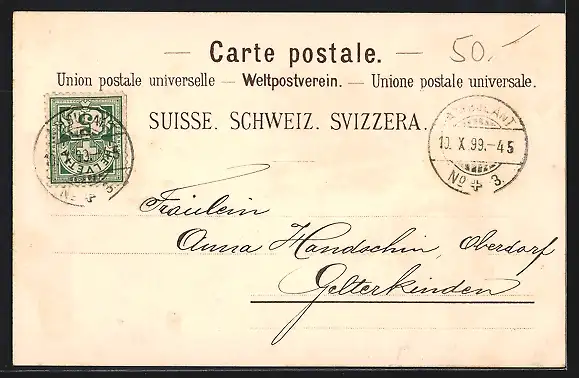 — Carte postale. —
50.-
Union postale universelle — Weltpostverein. — Unione postale universale.
SUISSE. SCHWEIZ. SVIZZERA.
AMBULANT
10. X 99.-45
No 3.
HELVETIA
Fräulein
Anna Handschin, Oberdorf
Gelterkinden